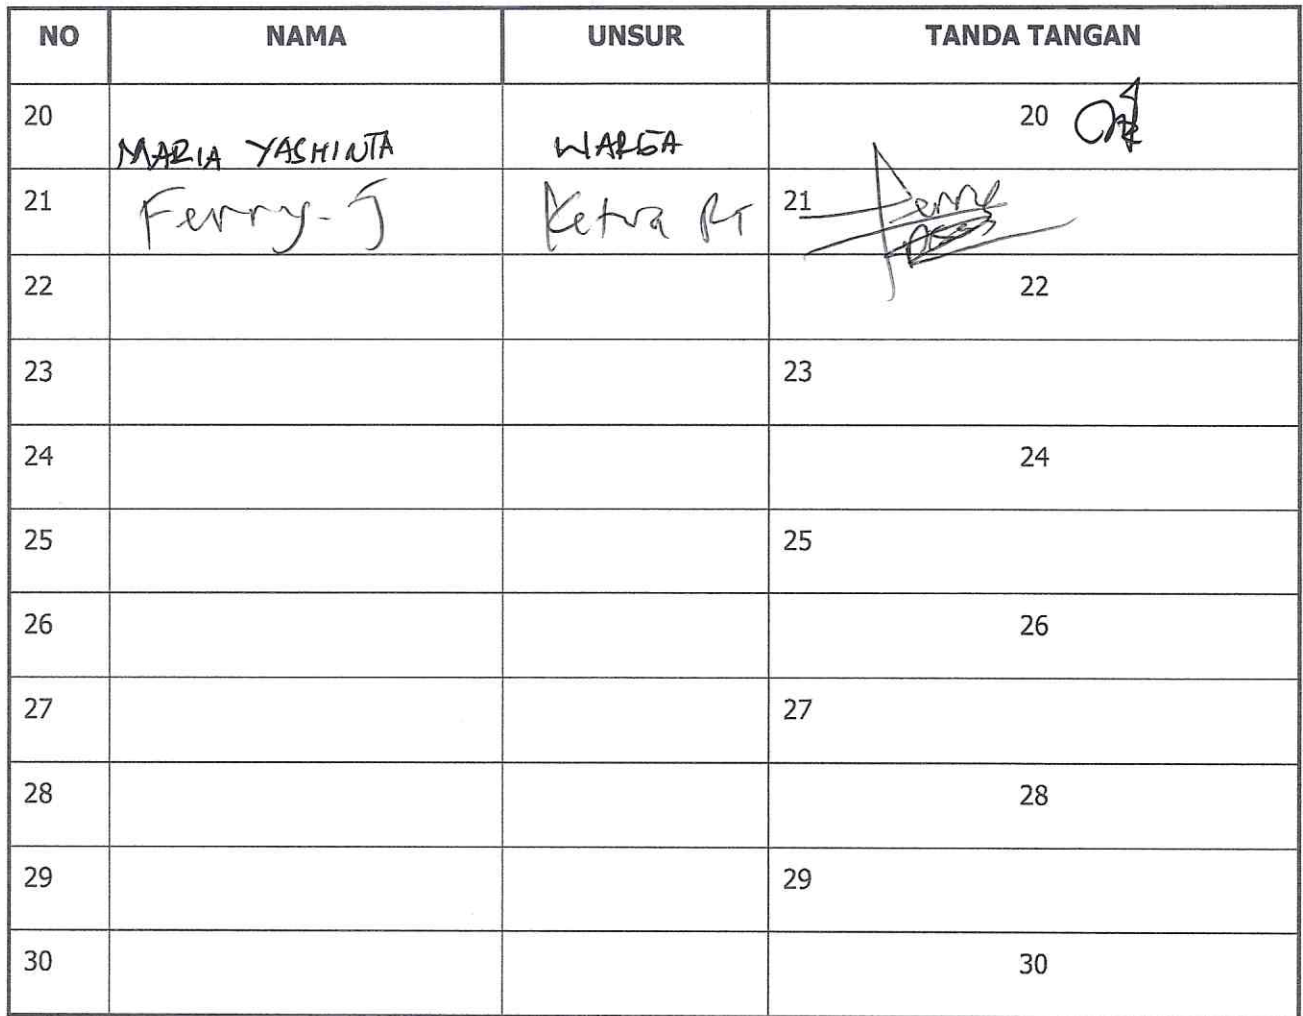 NO NAMA UNSUR TANDA TANGAN
20 MARIA YASHINTA WARGA 20
21 Ferry-J Ketua RT 21
22 22
23 23
24 24
25 25
26 26
27 27
28 28
29 29
30 30